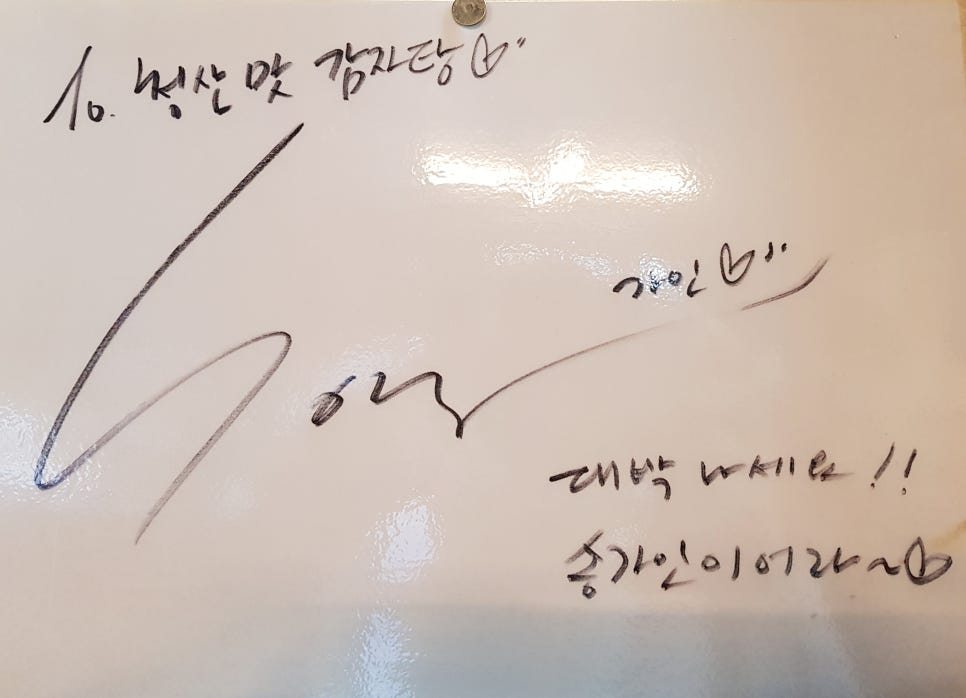 To. 청산 맛 감자탕♡
Song
가인♡
대박 나세요!!
송가인이어라~♡